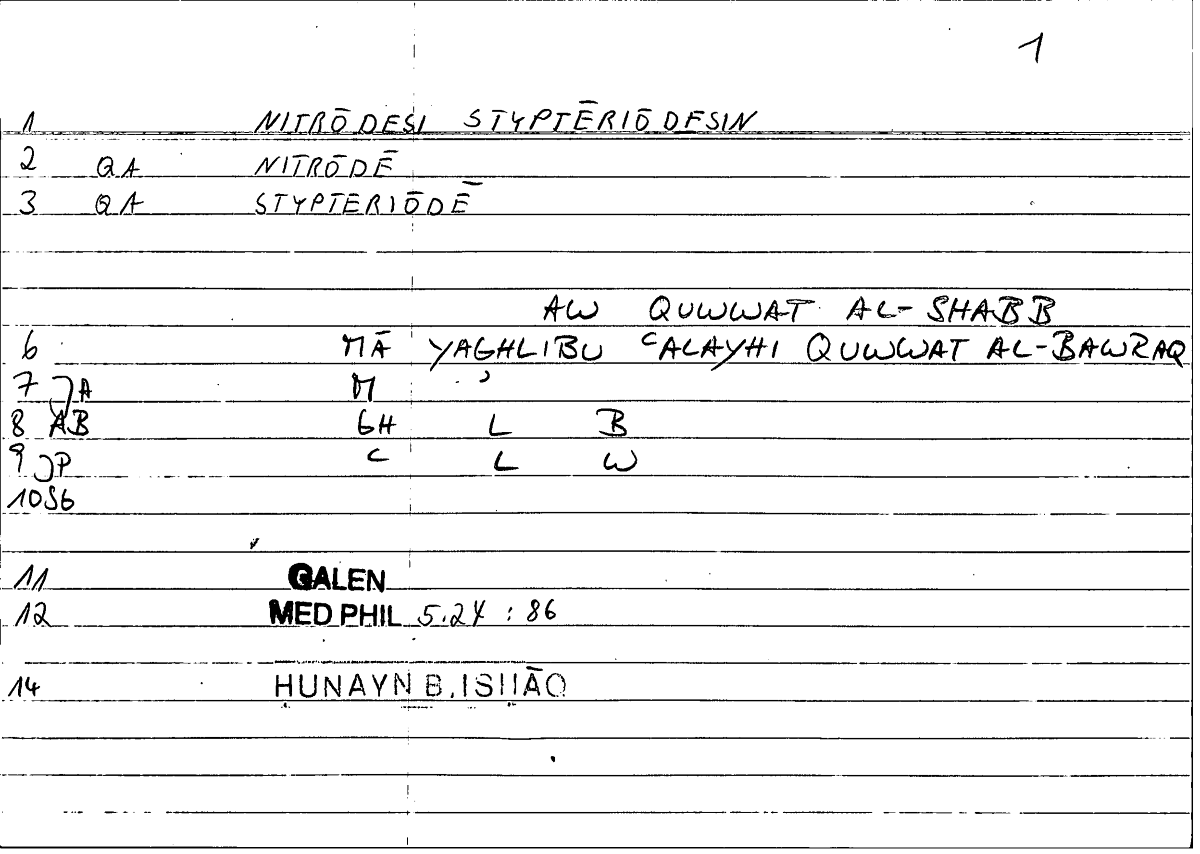 1
1 NITRŌDESI STYPTĒRIŌDESIN
2 QA NITRŌDĒ
3 QA STYPTERIŌDĒ
AW QUWWAT AL-SHABB
6 MĀ YAGHLIBU ʿALAYHI QUWWAT AL-BAWRAQ
7 JA M ʾ
8 AB GH L B
9 JP ʿ L W
10 S6
11 GALEN
12 MED PHIL 5.24 : 86
14 ḤUNAYN B. ISḤĀQ